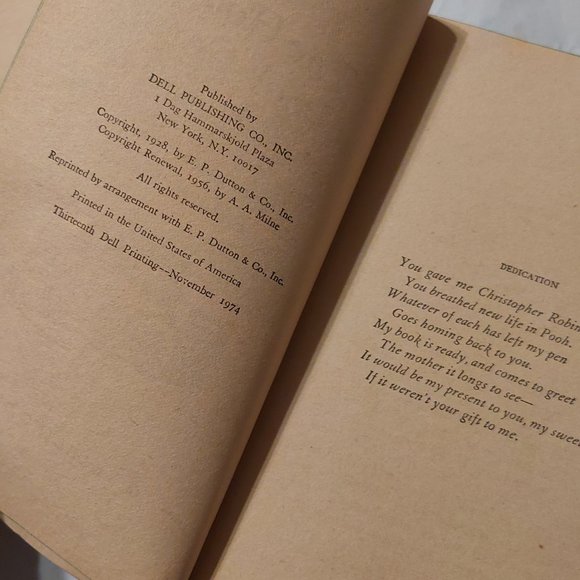 Published by
DELL PUBLISHING CO., INC.
1 Dag Hammarskjold Plaza
New York, N.Y. 10017
Copyright, 1928, by E. P. Dutton & Co., Inc.
Copyright Renewal, 1956, by A. A. Milne
All rights reserved.
Reprinted by arrangement with E. P. Dutton & Co., Inc.
Printed in the United States of America
Thirteenth Dell Printing—November 1974
DEDICATION
You gave me Christopher Robin
You breathed new life in Pooh.
Whatever of each has left my pen
Goes homing back to you.
My book is ready, and comes to greet
The mother it longs to see—
It would be my present to you, my sweet
If it weren't your gift to me.